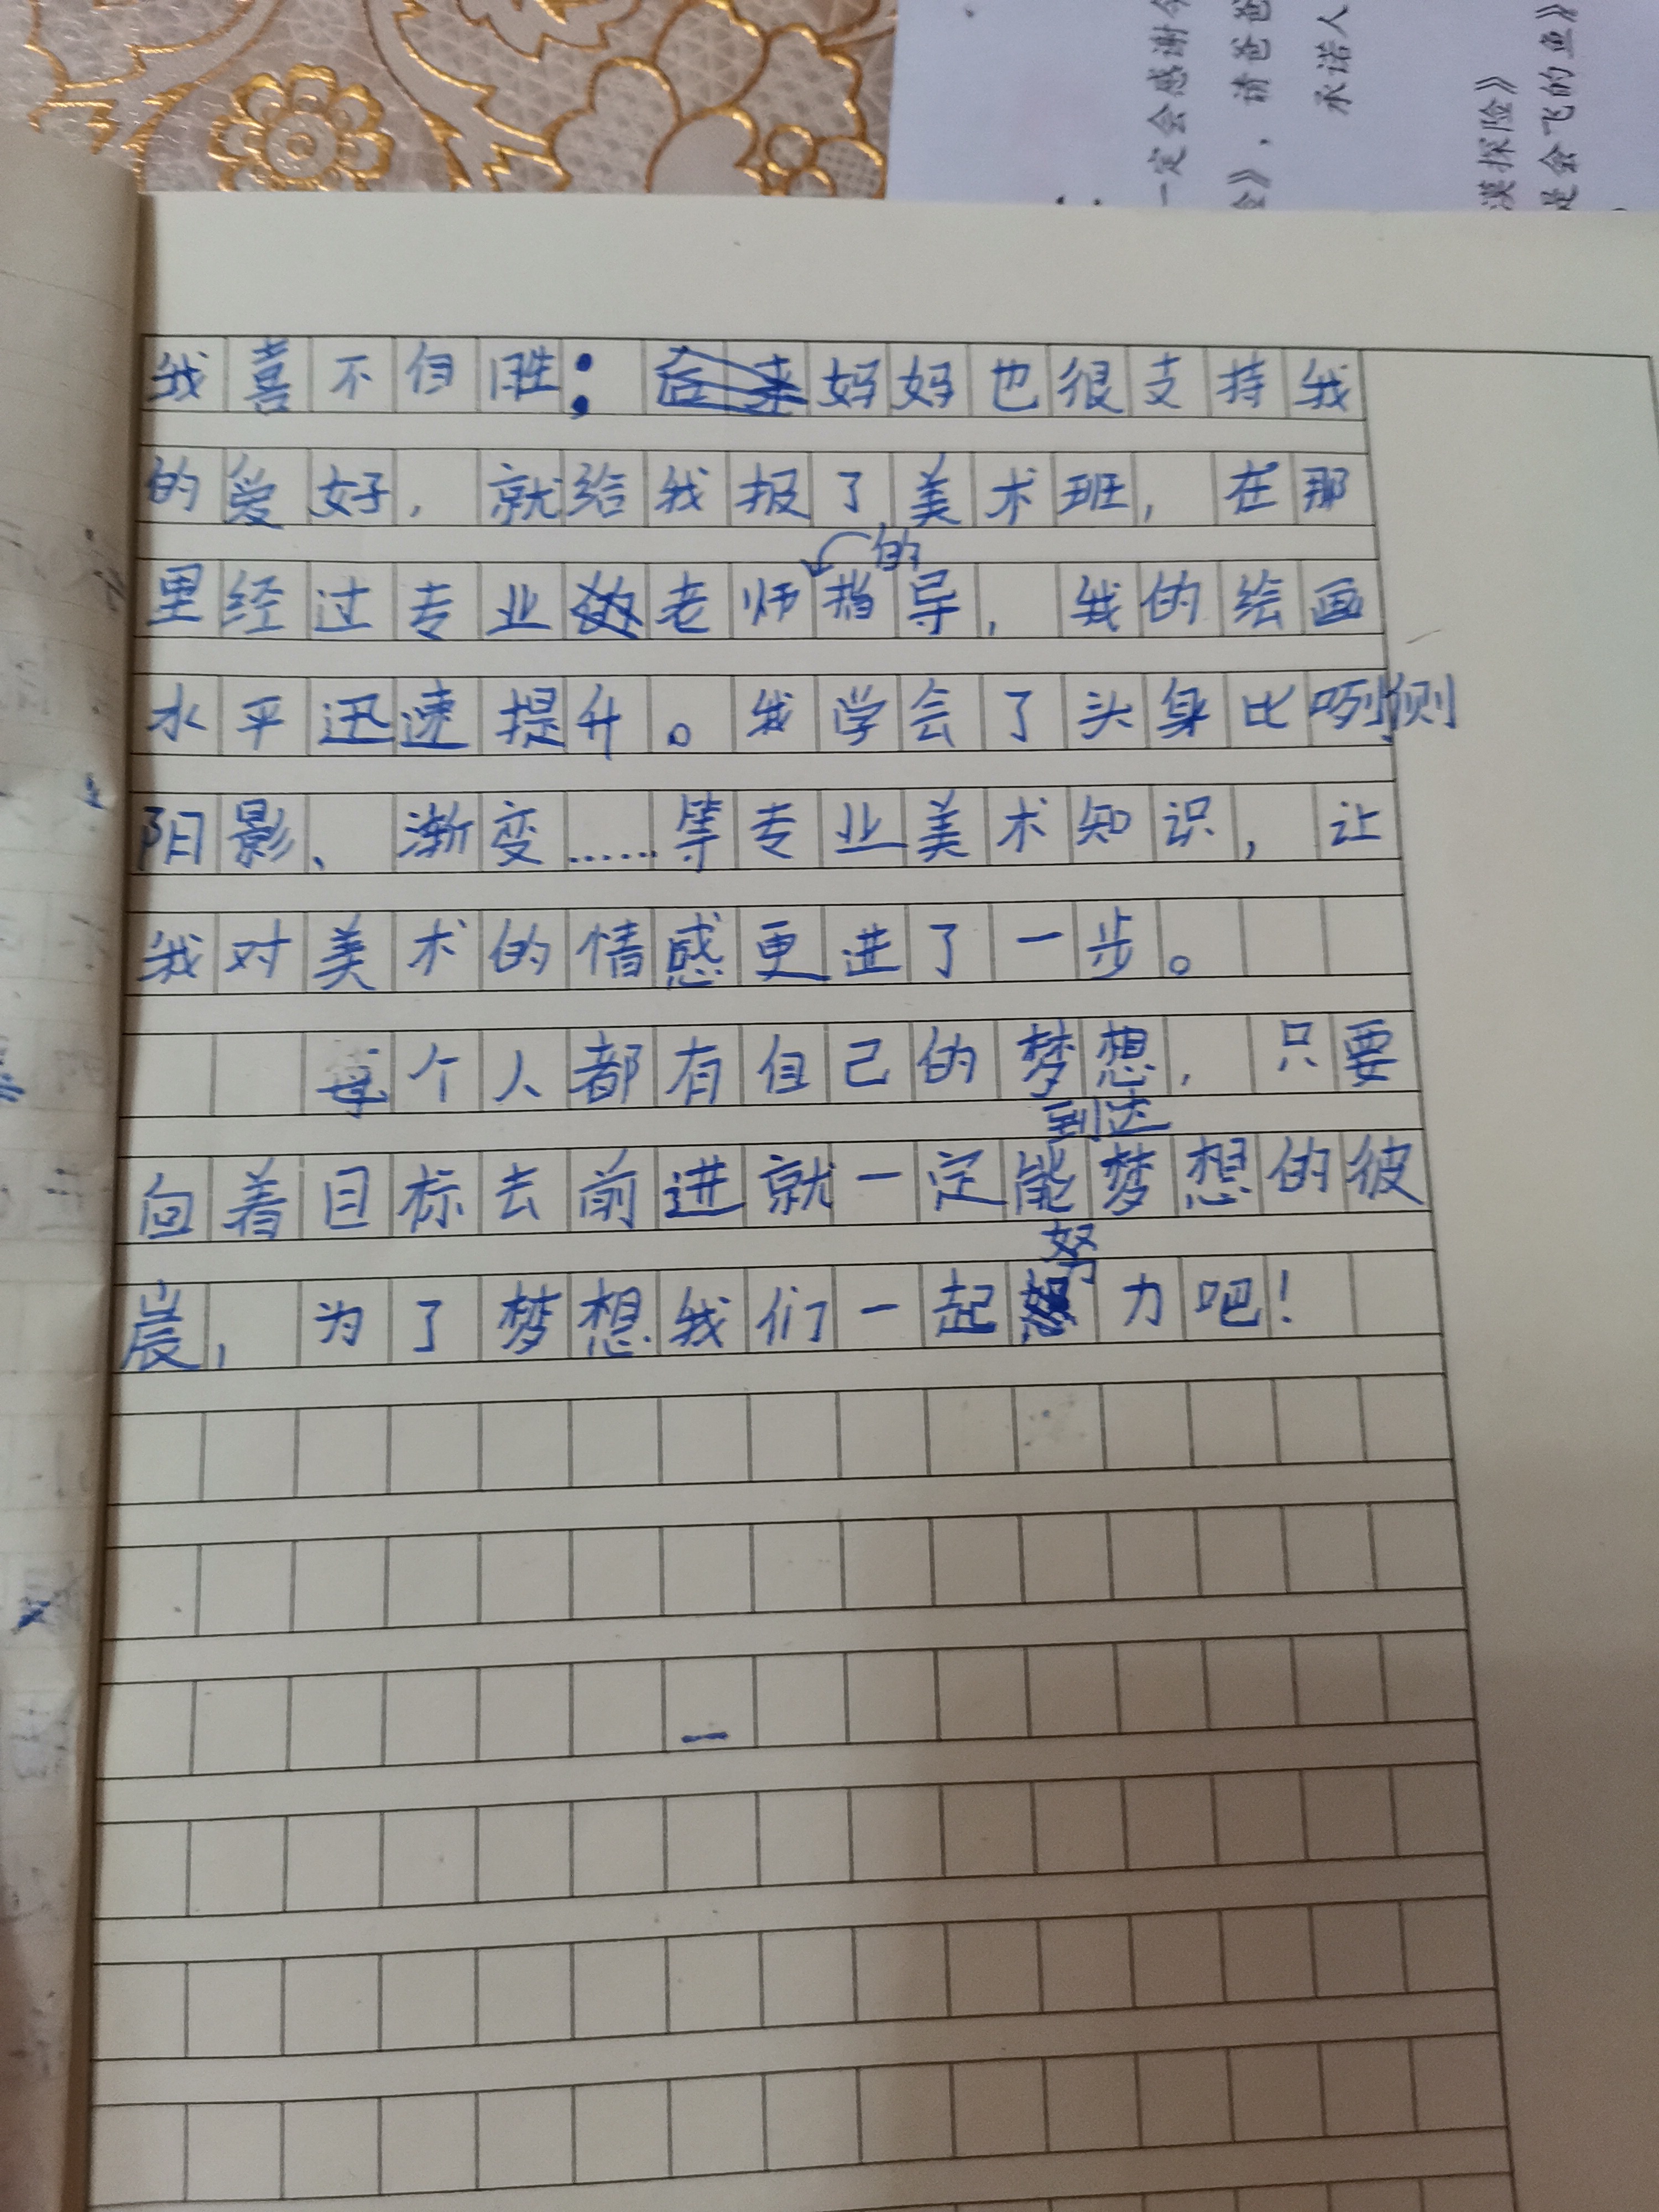 一定会感谢
金》，请爸爸
承诺人
漠探险》
是会飞的鱼》
我喜不自胜：妈妈也很支持我
的爱好，就给我报了美术班，在那
里经过专业老师的指导，我的绘画
水平迅速提升。我学会了头身比例侧
阳影、渐变……等专业美术知识，让
我对美术的情感更进了一步。
每个人都有自己的梦想，只要
向着目标去前进就一定能到达梦想的彼
岸，为了梦想我们一起努力吧！